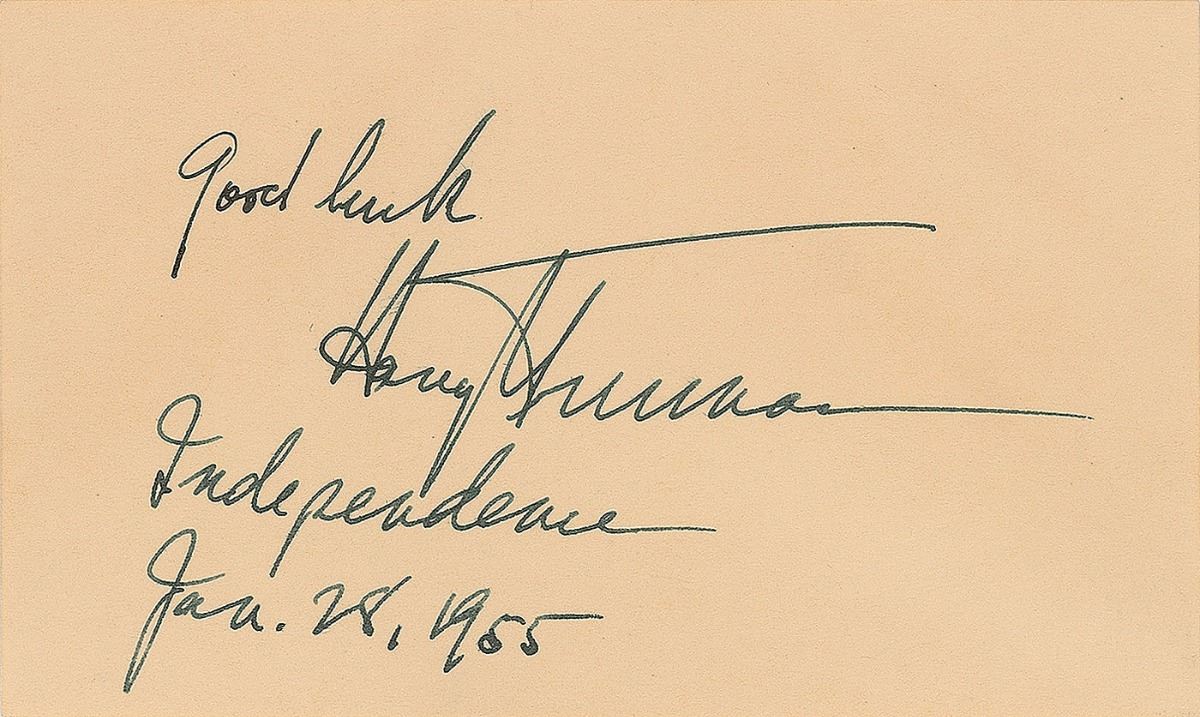 Good luck
Harry Truman
Independence
Jan. 28, 1955